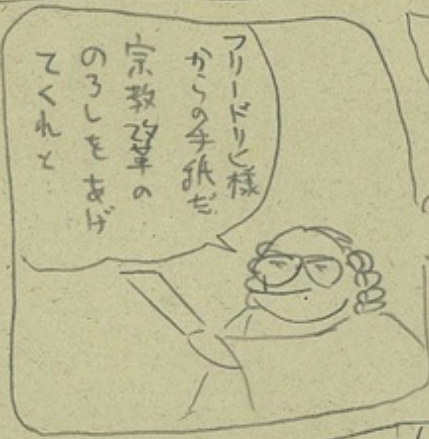 フリードリヒ様
からの手紙だ
宗教改革の
のろしをあげ
てくれと…